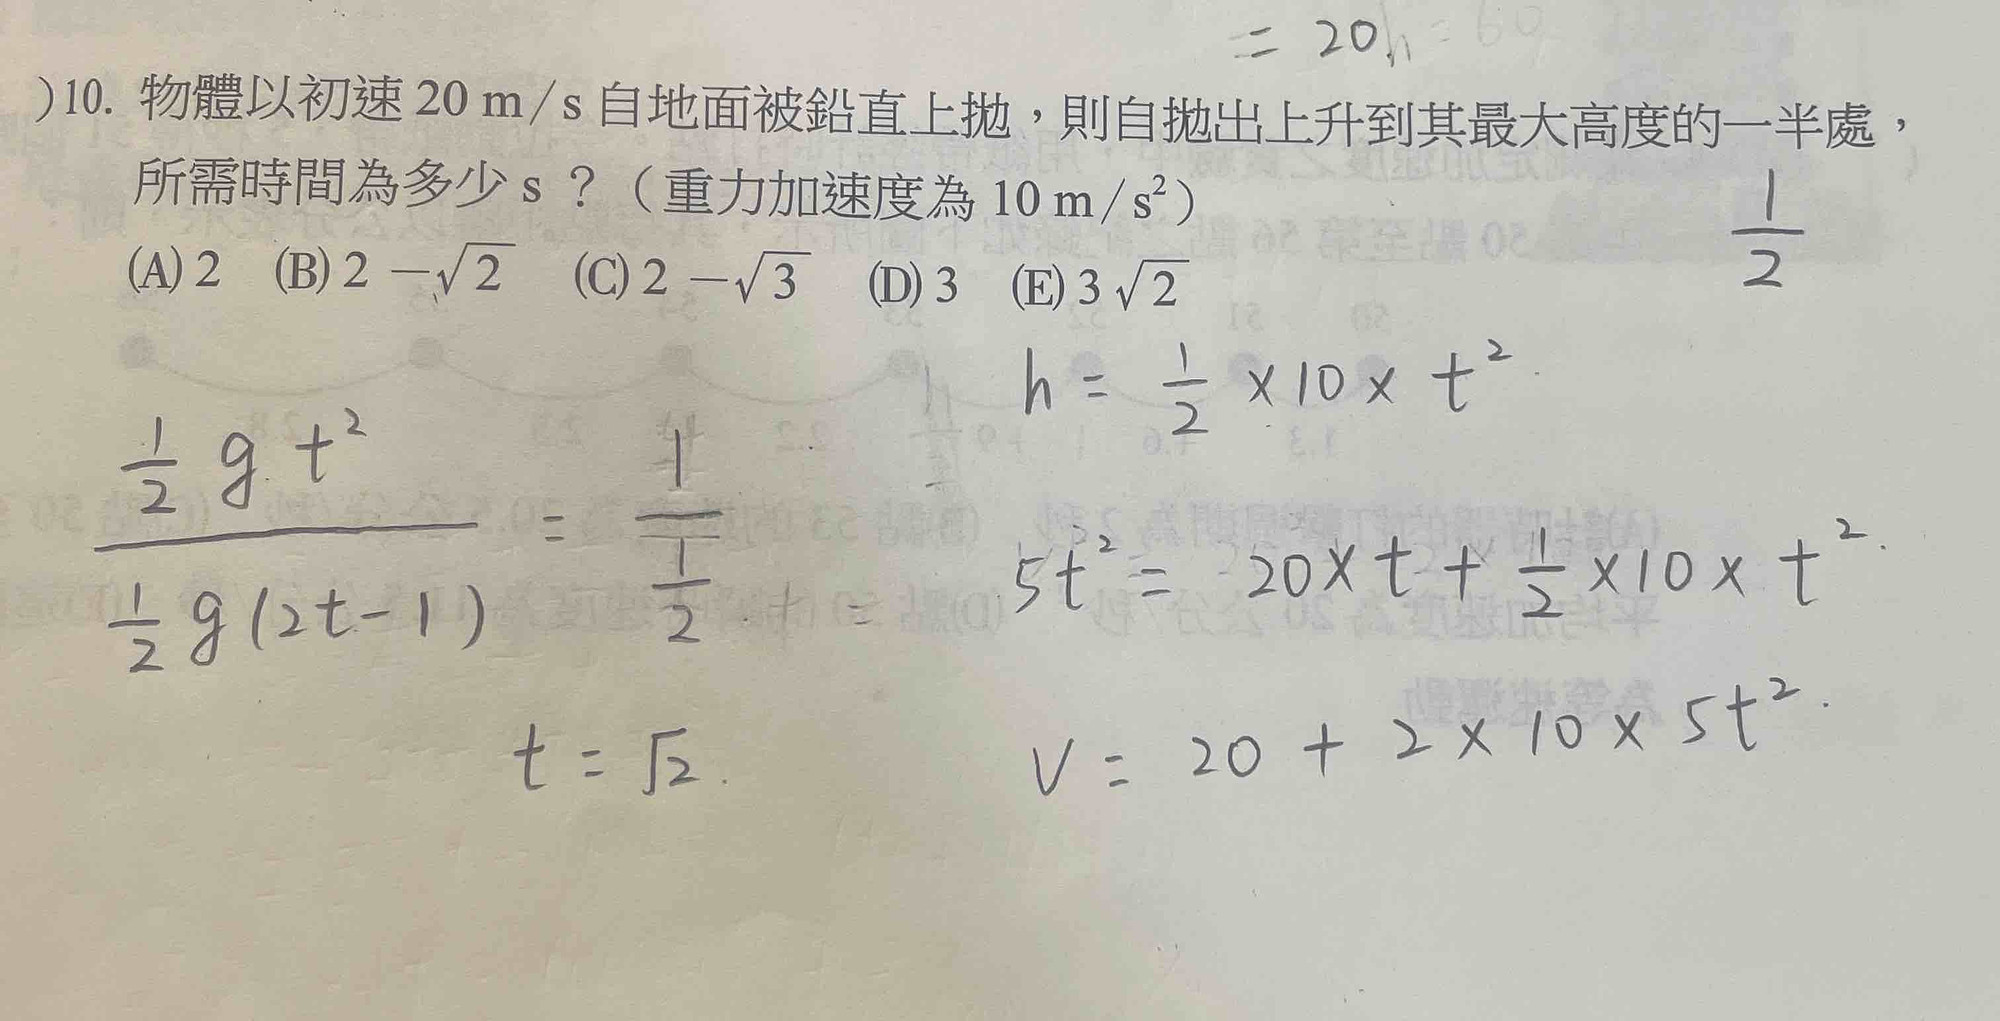 = 20
)10. 物體以初速 20 m/s 自地面被鉛直上拋，則自拋出上升到其最大高度的一半處，
所需時間為多少 s ？（重力加速度為 10 m/s²）
(A) 2 (B) 2 −√2 (C) 2 −√3 (D) 3 (E) 3√2
1/2
h = 1/2 × 10 × t²
(1/2 g t²)/(1/2 g (2t-1)) = 1/(1/2)
5t² = 20 × t + 1/2 × 10 × t²
t = √2
V = 20 + 2 × 10 × 5t²